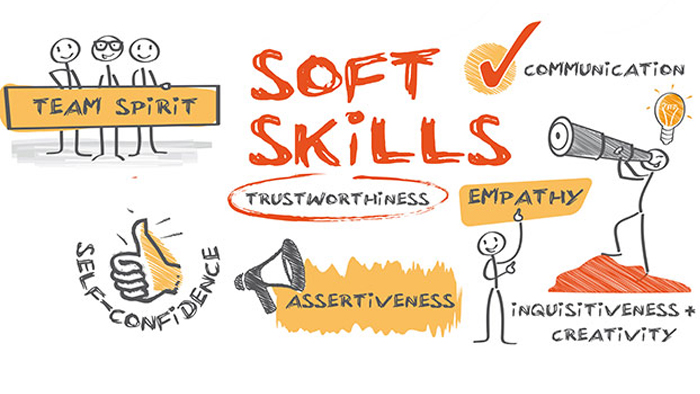 TEAM SPIRIT
SOFT
SKILLS
COMMUNICATION
TRUSTWORTHINESS
EMPATHY
SELF-CONFIDENCE
ASSERTIVENESS
INQUISITIVENESS +
CREATIVITY